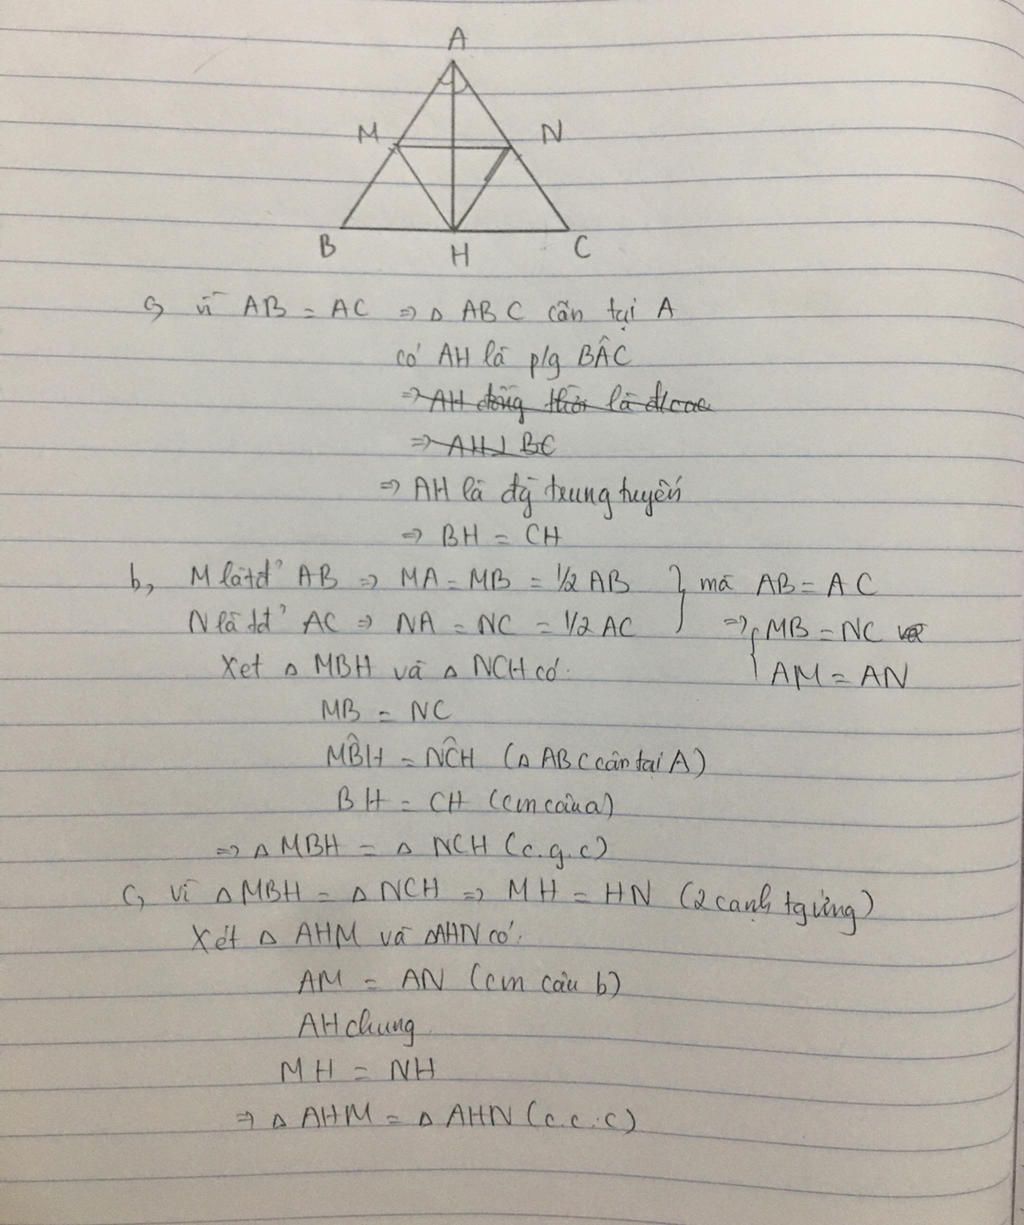 A
M N
B H C
a, vì AB = AC => △ ABC cân tại A
có AH là p/g BÂC
=> AH đồng thời là đ/cao
=> AH⊥BC
=> AH là đg trung tuyến
=> BH = CH
b, M là tđ' AB => MA = MB = 1/2 AB } mà AB = AC
N là tđ' AC => NA = NC = 1/2 AC => { MB = NC
Xét △ MBH và △ NCH có: AM = AN
MB = NC
MB̂H = NĈH (△ ABC cân tại A)
BH = CH (cm câu a)
=> △ MBH = △ NCH (c.g.c)
c, vì △ MBH = △ NCH => MH = HN (2 cạnh tg ứng)
Xét △ AHM và △AHN có:
AM = AN (cm câu b)
AH chung
MH = NH
=> △ AHM = △ AHN (c.c.c)